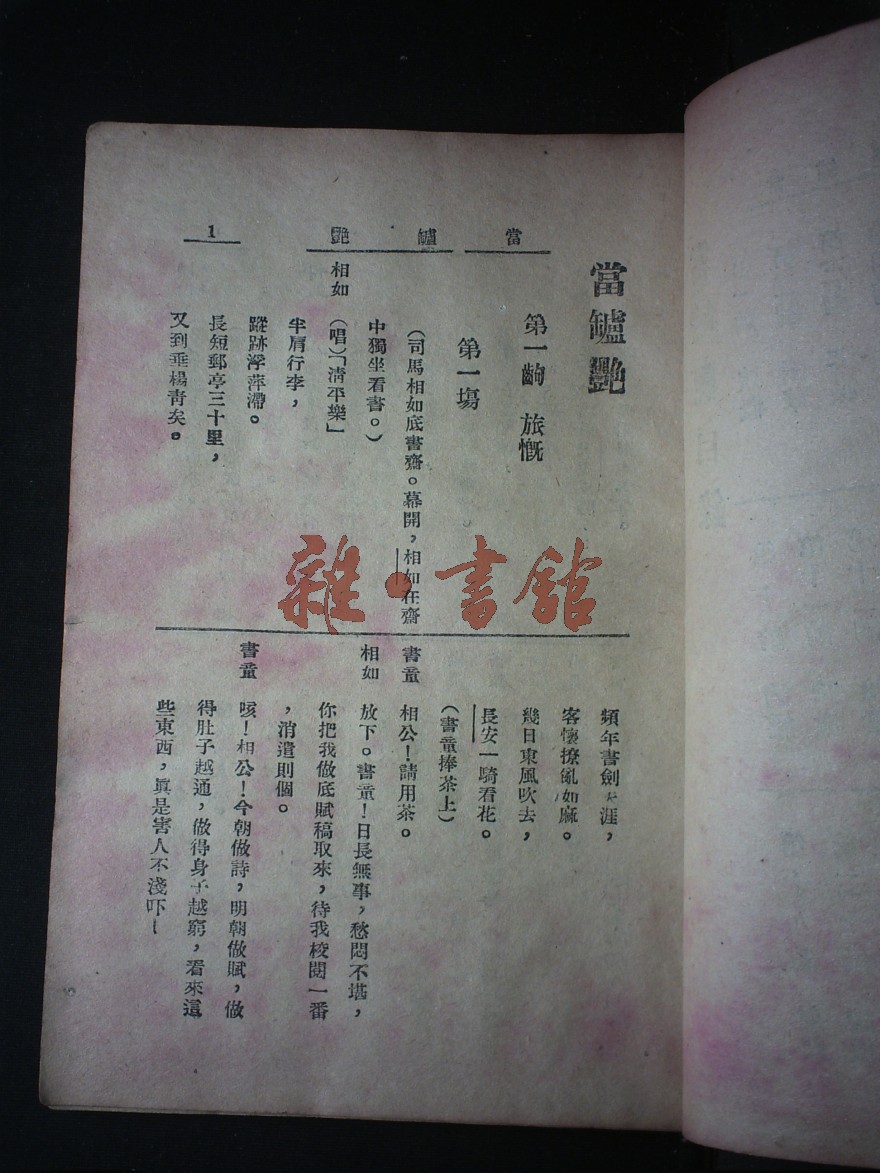 當罏艷
1
當罏艷
第一齣 旅慨
第一場
(司馬相如底書齋。幕開,相如在齋
中獨坐看書。)
相如 (唱)「清平樂」
半肩行李,
蹤跡浮萍滯。
長短郵亭三十里,
又到垂楊青矣。
頻年書劍天涯,
客懷撩亂如麻。
幾日東風吹去,
長安一騎看花。
(書童捧茶上)
書童 相公!請用茶。
相如 放下。書童!日長無事,愁悶不堪,
你把我做底賦稿取來,待我校閱一番
,消遣則個。
書童 咳!相公!今朝做詩,明朝做賦,做
得肚子越通,做得身子越窮,看來這
些東西,眞是害人不淺吓!
雜·書館